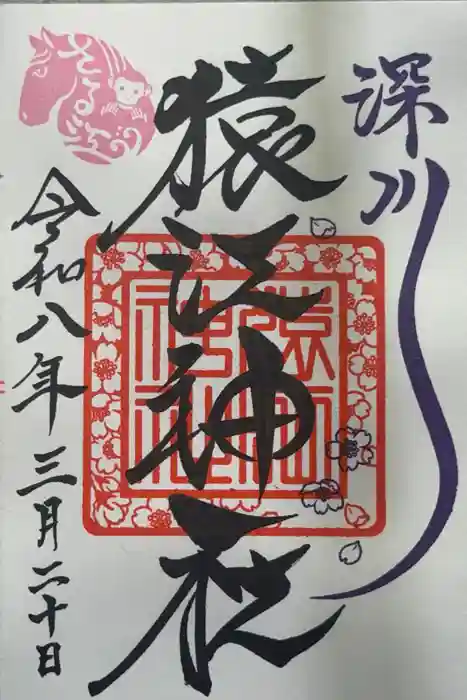 深川
猿江神社
猿江神社
令和八年三月二十日
さる江の